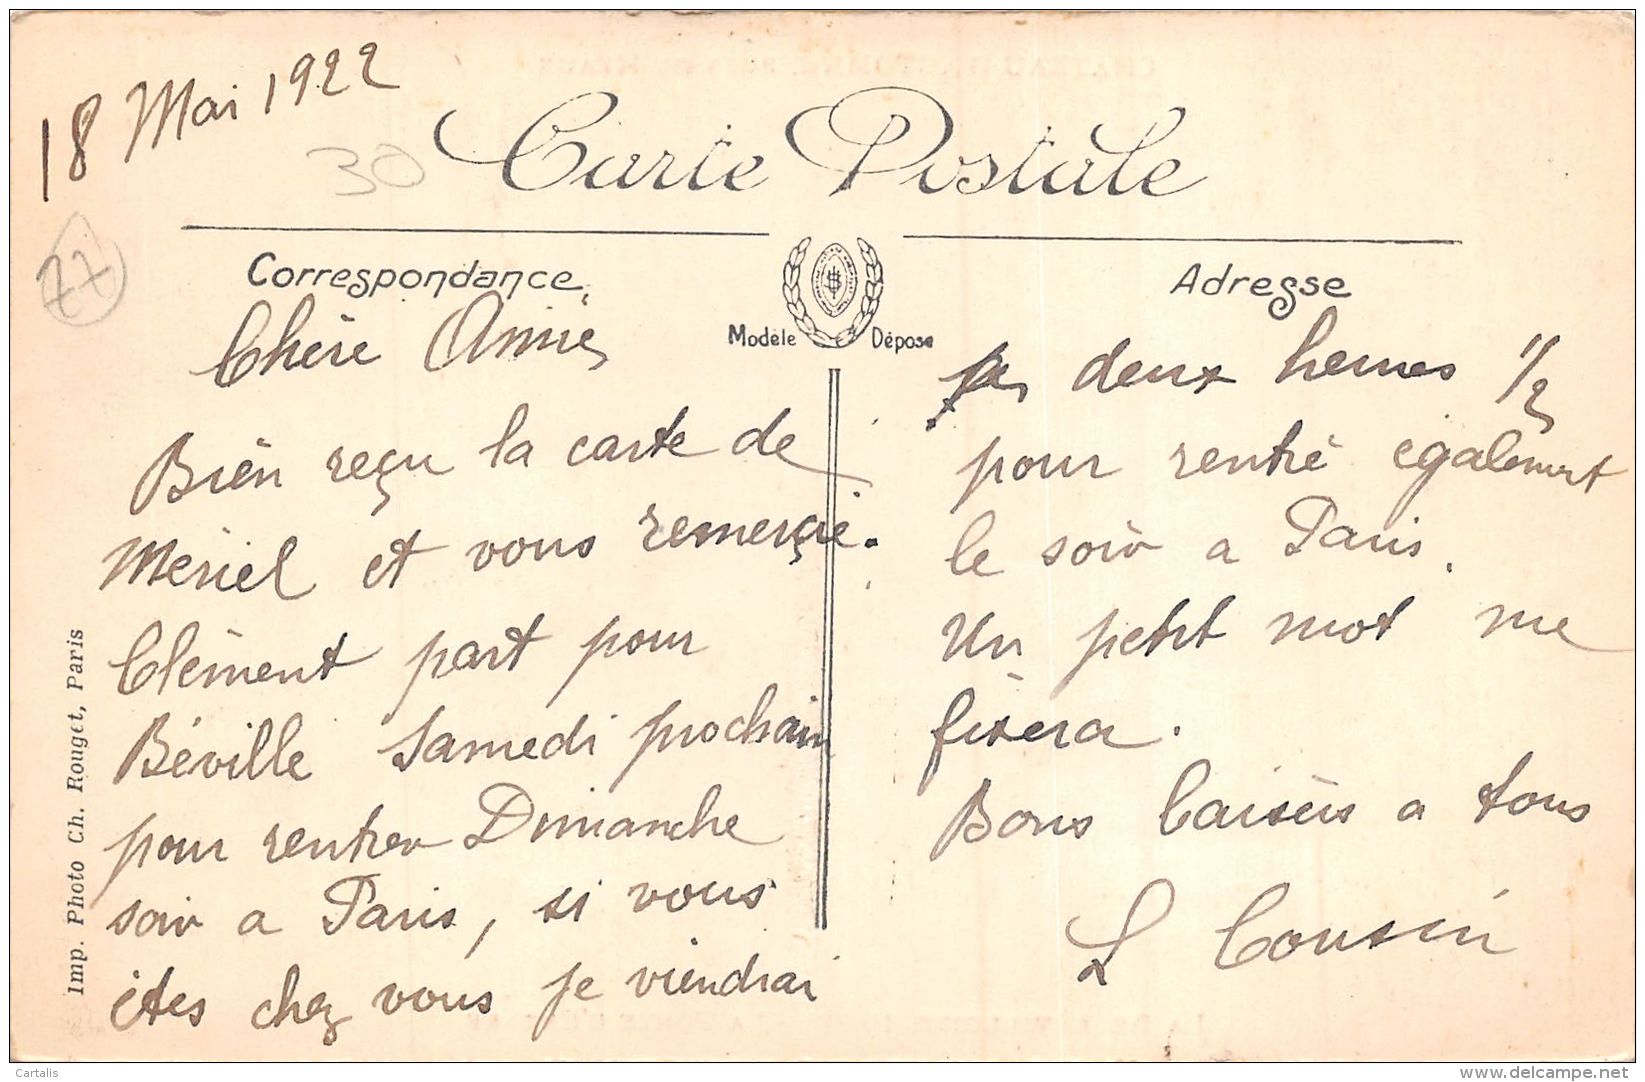 18 Mai 1922
30
77
Carte Postale
Correspondance
Modèle Déposé
Adresse
Chère Amie,
Bien reçu la carte de
Mériel et vous remerçie.
Clément part pour
Béville samedi prochain
pour rentrer Dimanche
soir a Paris, si vous
êtes chez vous je viendrai
deux heures 1/2
pour rentré egalement
le soir a Paris.
Un petit mot me
fixera.
Bons baisers a tous
L Cousin
Imp. Photo Ch. Rouget, Paris
Cartalis
www.delcampe.net